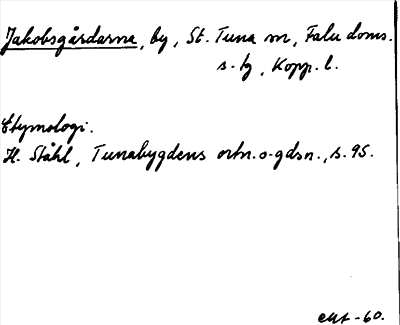 Jakobsgårdarna, by, St. Tuna sn, Falu doms.
s-tg, Kopp. l.
Etymologi.
H. Ståhl, Tunabygdens ortn. o. gdsn., s. 95.
-60.